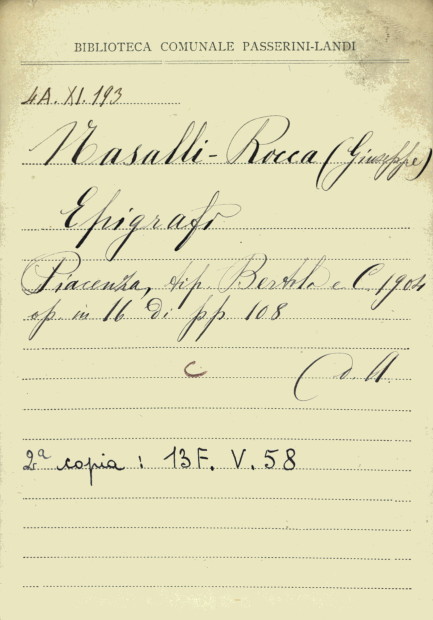 BIBLIOTECA COMUNALE PASSERINI-LANDI
4A. XI. 193
Nasalli-Rocca (Giuseppe)
Epigrafi
Piacenza, tip. Bertola e C. 1904
op in 16 di pp 108
C
(d. A.
2ª copia : 13F. V. 58